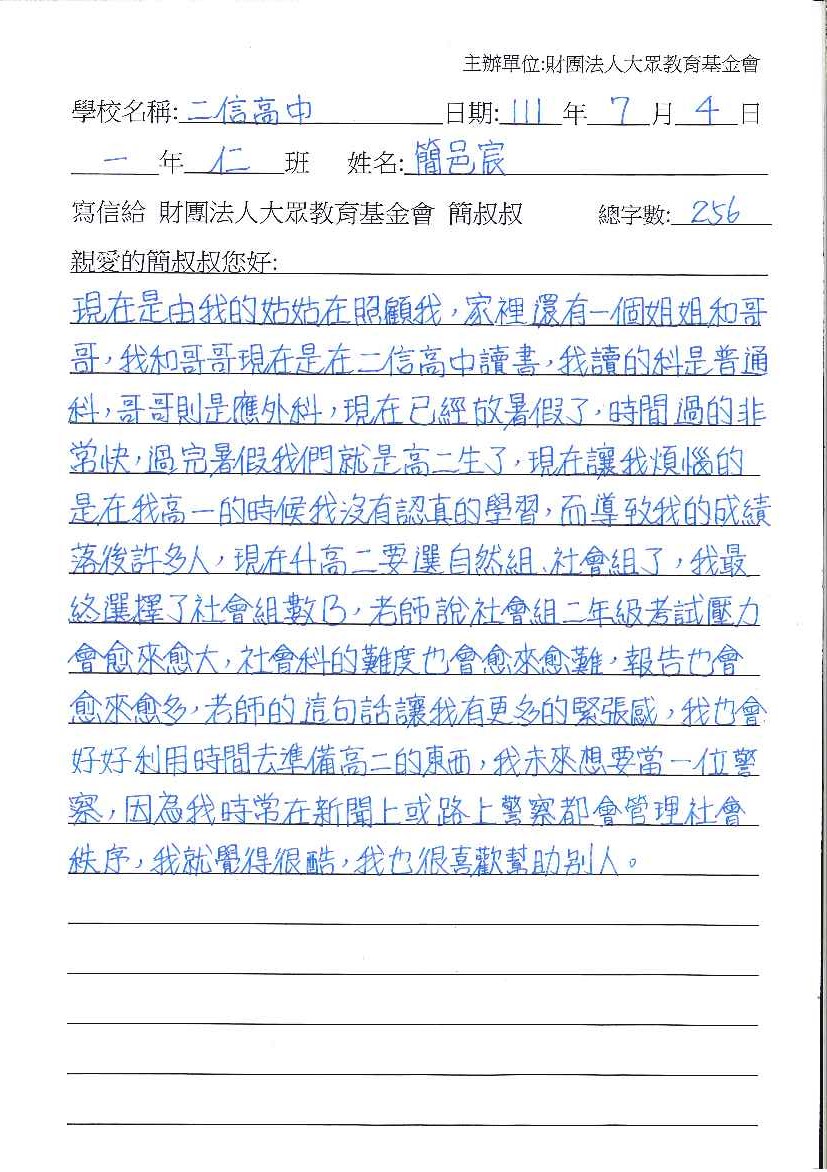 主辦單位:財團法人大眾教育基金會
學校名稱: 二信高中 日期: 111 年 7 月 4 日
一 年 仁 班 姓名: 簡邑宸
寫信給 財團法人大眾教育基金會 簡叔叔 總字數: 256
親愛的簡叔叔您好:
現在是由我的姑姑在照顧我，家裡還有一個姐姐和哥
哥，我和哥哥現在是在二信高中讀書，我讀的科是普通
科，哥哥則是應外科，現在已經放暑假了，時間過的非
常快，過完暑假我們就是高二生了，現在讓我煩惱的
是在我高一的時候我沒有認真的學習，而導致我的成績
落後許多人，現在升高二要選自然組、社會組了，我最
終選擇了社會組數B，老師說社會組二年級考試壓力
會愈來愈大，社會科的難度也會愈來愈難，報告也會
愈來愈多，老師的這句話讓我有更多的緊張感，我也會
好好利用時間去準備高二的東西，我未來想要當一位警
察，因為我時常在新聞上或路上警察都會管理社會
秩序，我就覺得很酷，我也很喜歡幫助別人。